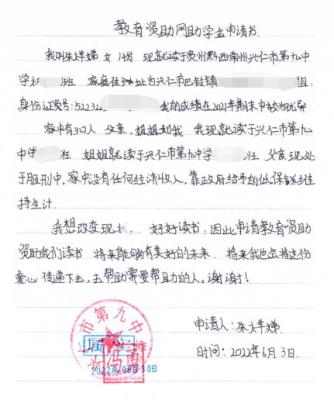 教育资助网助学金申请书
女 14岁 现就读于贵州黔西南州兴仁市第九中
学 班 家庭住址为兴仁市巴铃镇 组
身份证号: 52232 我的成绩在2021年期末中较为优秀
家中有3口人 父亲、姐姐和我 我现就读于兴仁市第九
中学 班 姐姐就读于兴仁市第九中学 班 父亲现处
于服刑中,家中没有任何经济收入,靠政府给予的低保钱维
持生计.
我想改变现状,好好读书,因此申请教育资助
资助我们读书 将来能够有美好的未来 将来我也会将这份
爱心 传递下去,去帮助需要帮助的人。谢谢!
市第九中
2022年06月30日
申请人:
时间:2022年6月3日.